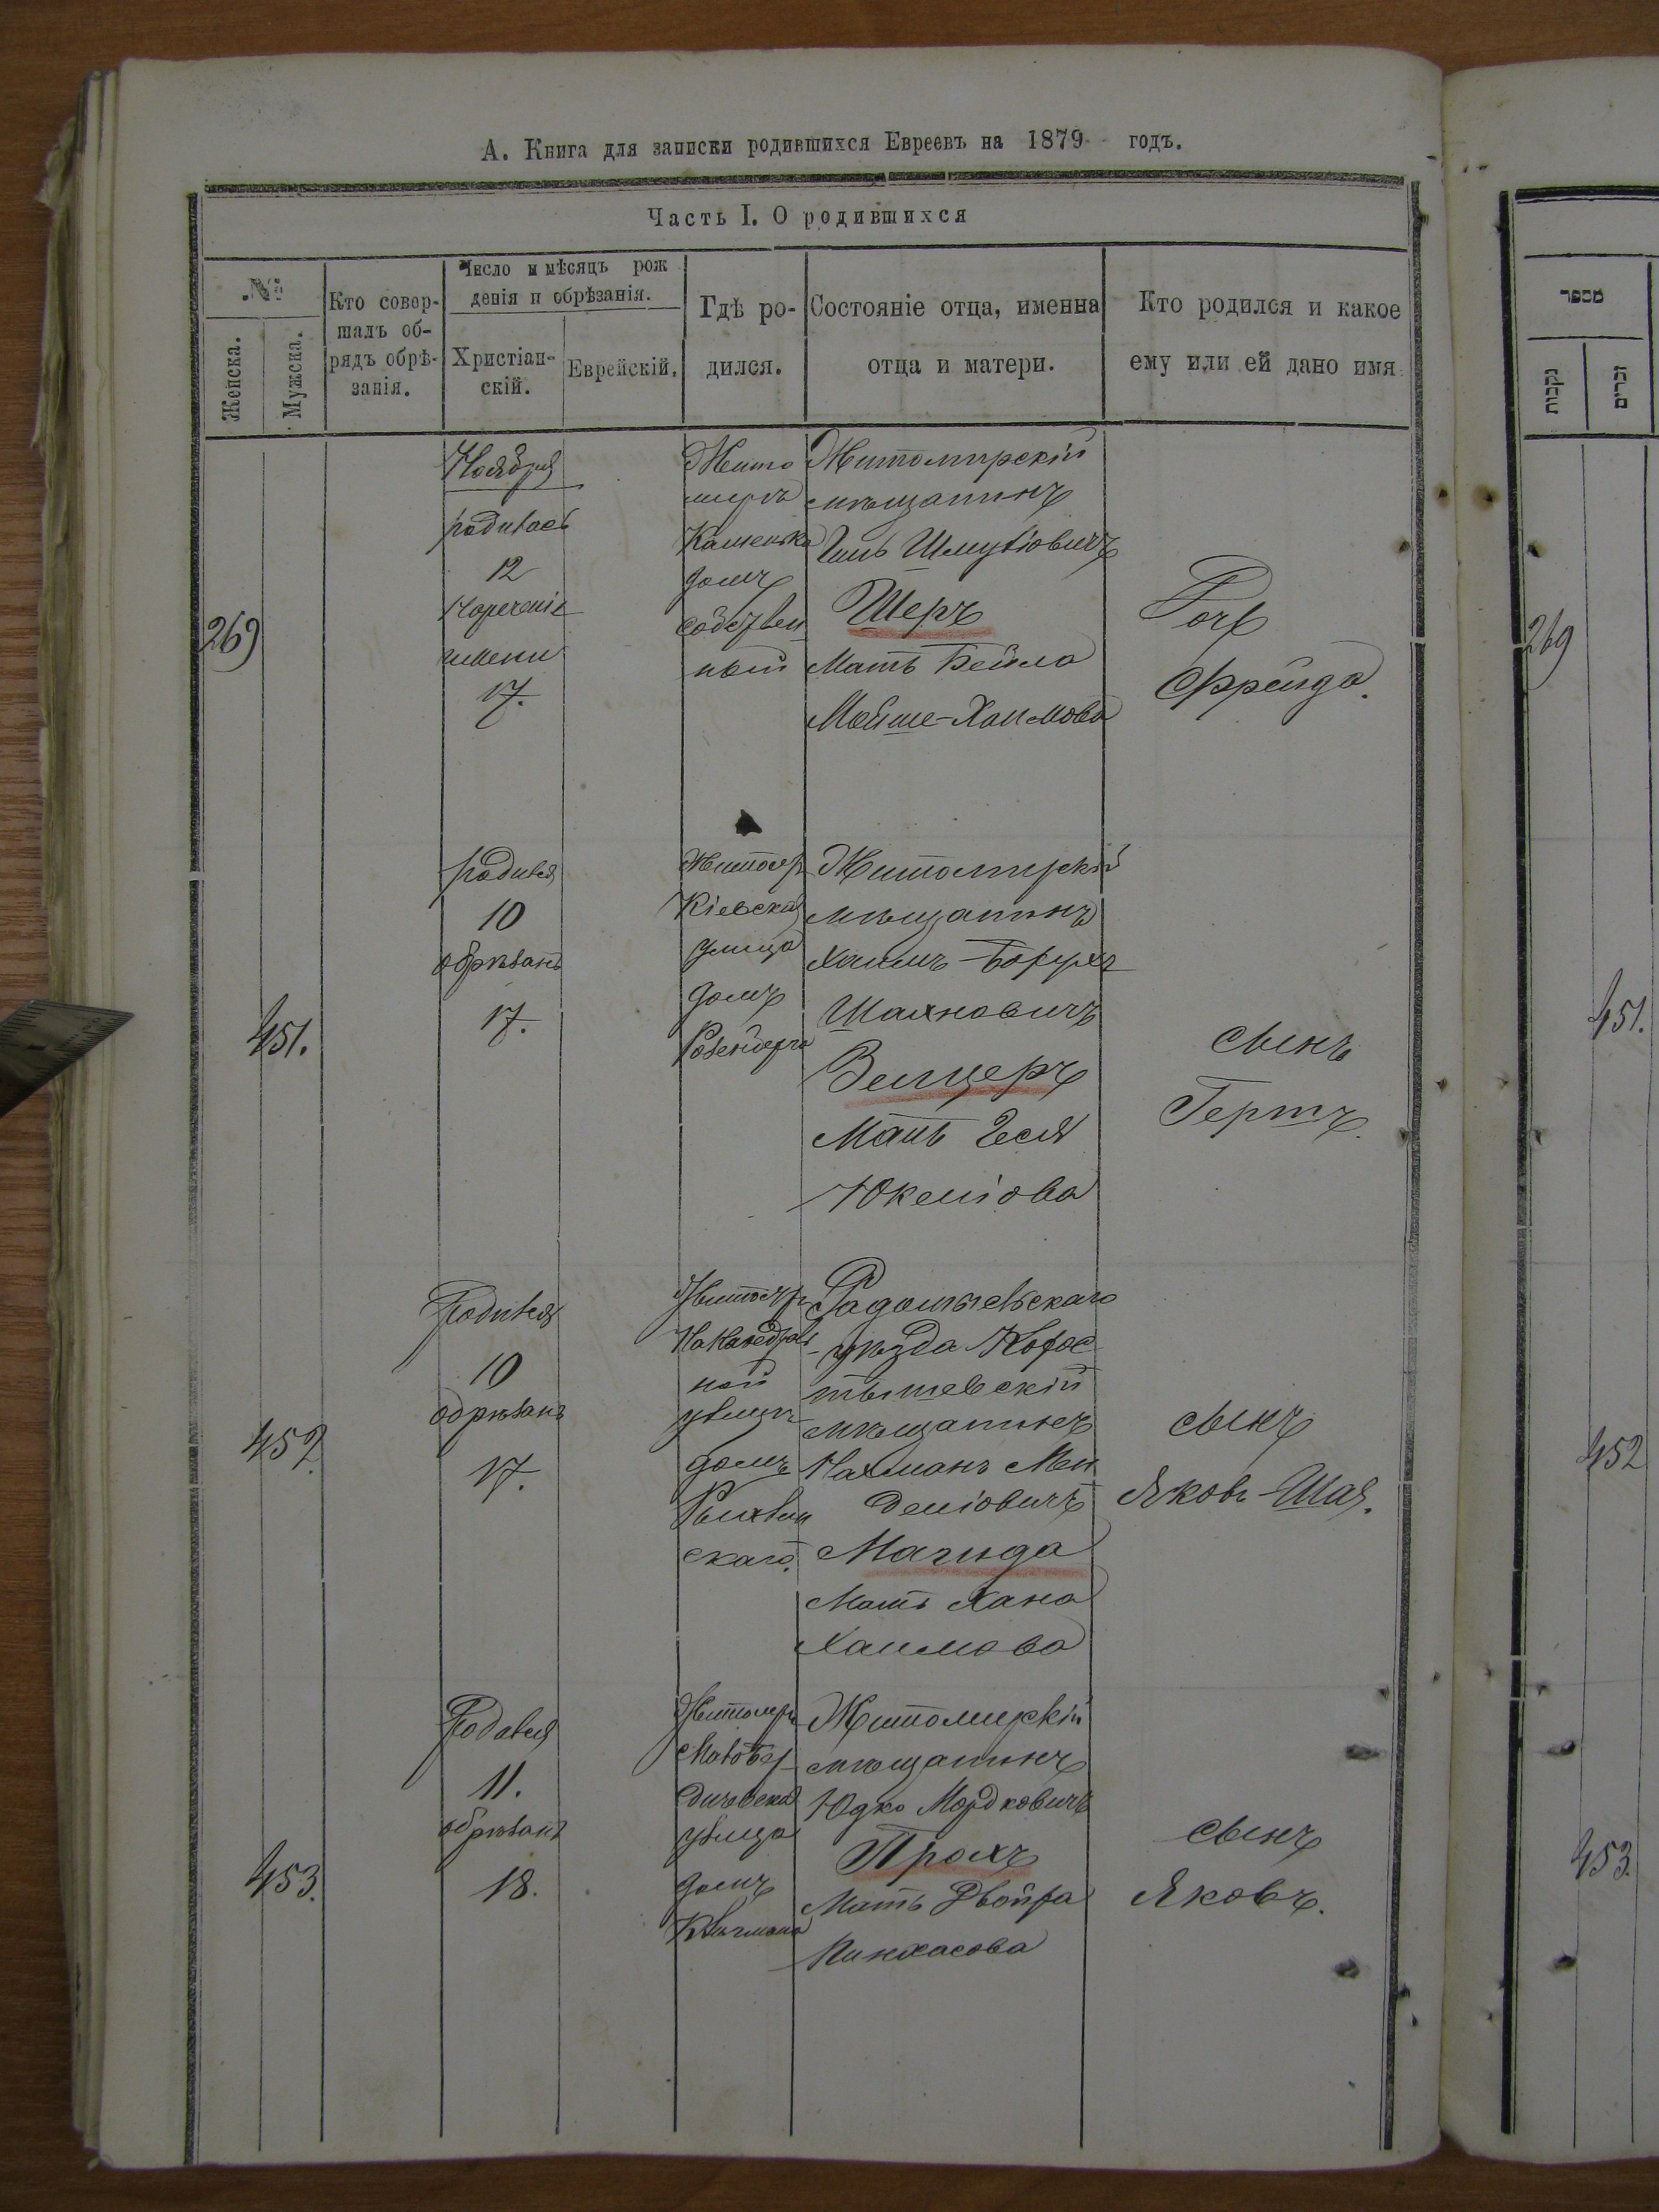 А. Книга для записки родившихся Евреевъ на 1879 годъ.
Часть I. О родившихся
№
Женска.
Мужска.
Кто совер-
шалъ об-
рядъ обрѣ-
занія.
Число и мѣсяцъ рож
денія и обрѣзанія.
Христіан-
скій.
Еврейскій.
Гдѣ ро-
дился.
Состояніе отца, именна
отца и матери.
Кто родился и какое
ему или ей дано имя
269
Ноября
родилась
12
нареченіе
имени
17.
Жито
миръ
Каменка
домъ
собствен
ный
Житомирскій
мѣщанинъ
Шмулiовичъ
Шеръ
Мать Бейла
Мойше-Хаимова
Дочь
Фрейда.
451.
родился
10
обрѣзанъ
17.
Житомір
Кіевская
улица
домъ
Розенберга
Житомирскій
мѣщанинъ
Хаимъ-Борухъ
Шахновичъ
Зельцеръ
Мать Геся
Юкелiова
сынъ
Гершъ.
452.
Родился
10
обрѣзанъ
17.
Житомир
На Кафедраль
ной
улицѣ
домъ
скаго.
Радомысльскаго
уѣзда Корос
тышевскій
мѣщанинъ
Нахманъ Мен
делiовичъ
Магида
Мать Хана
Хаимова
сынъ
Яковъ-Шая.
453.
Родился
11.
обрѣзанъ
18.
Житомиръ
Малобер
дичевская
улица
домъ
Житомирскій
мѣщанинъ
Юдко Мордковичъ
Прохъ
Мать Двойра
Пинхасова
сынъ
Яковъ.
מספר
נקבות
זכרים
269
451.
452
453.